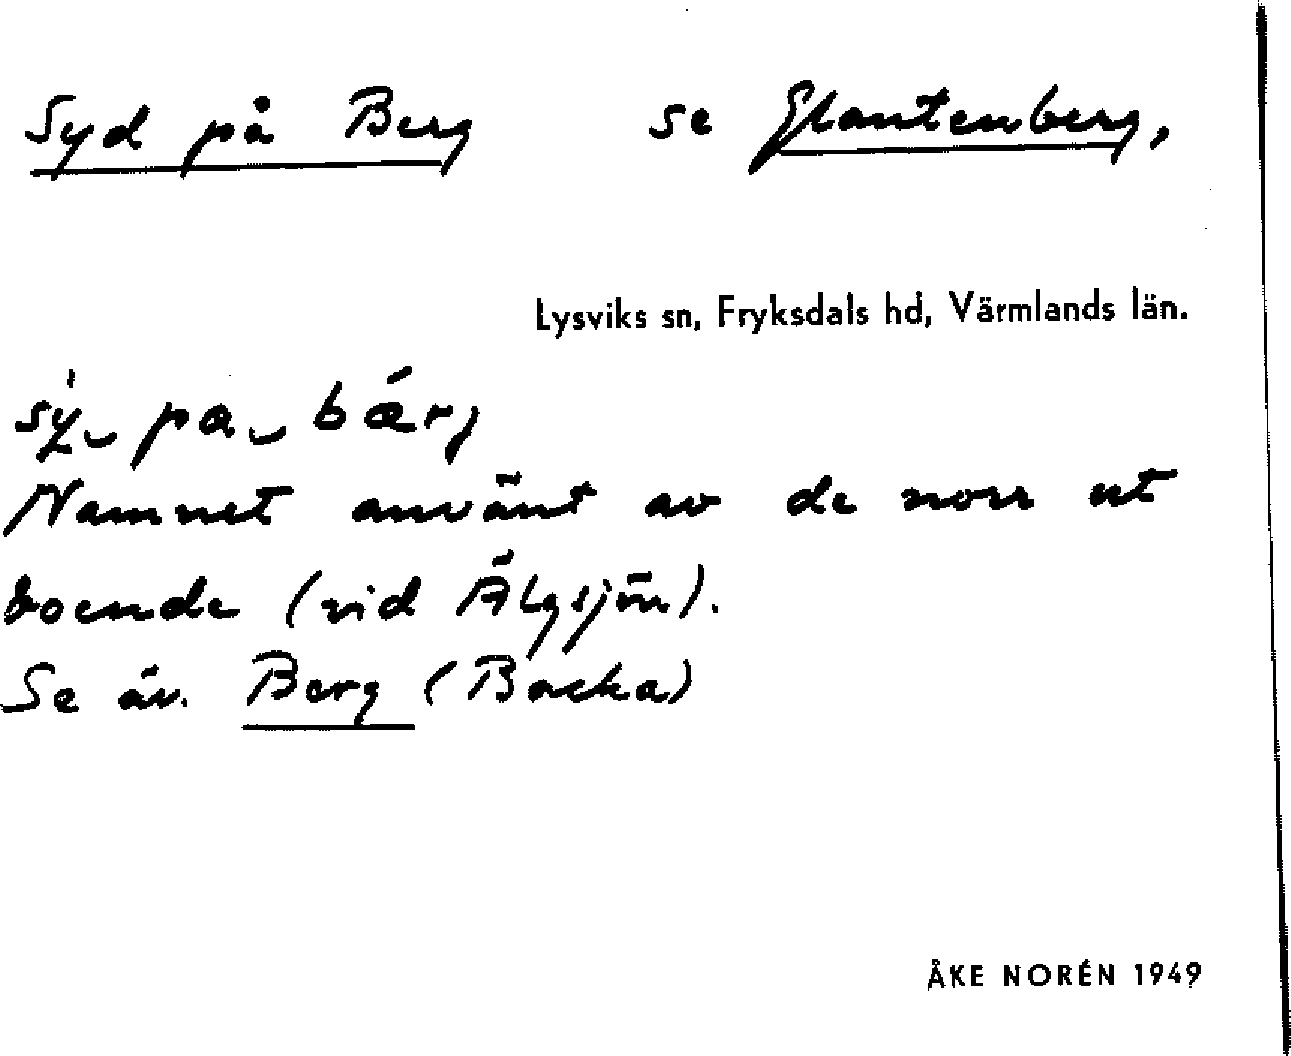 Syd på Berg se Glantenberg,
Lysviks sn, Fryksdals hd, Värmlands län.
sý‿ pa‿ bǽrj
Namnet använt av de norr ut
boende (vid Älgsjön).
Se äv. Berg (Backa)
ÅKE NORÉN 1949